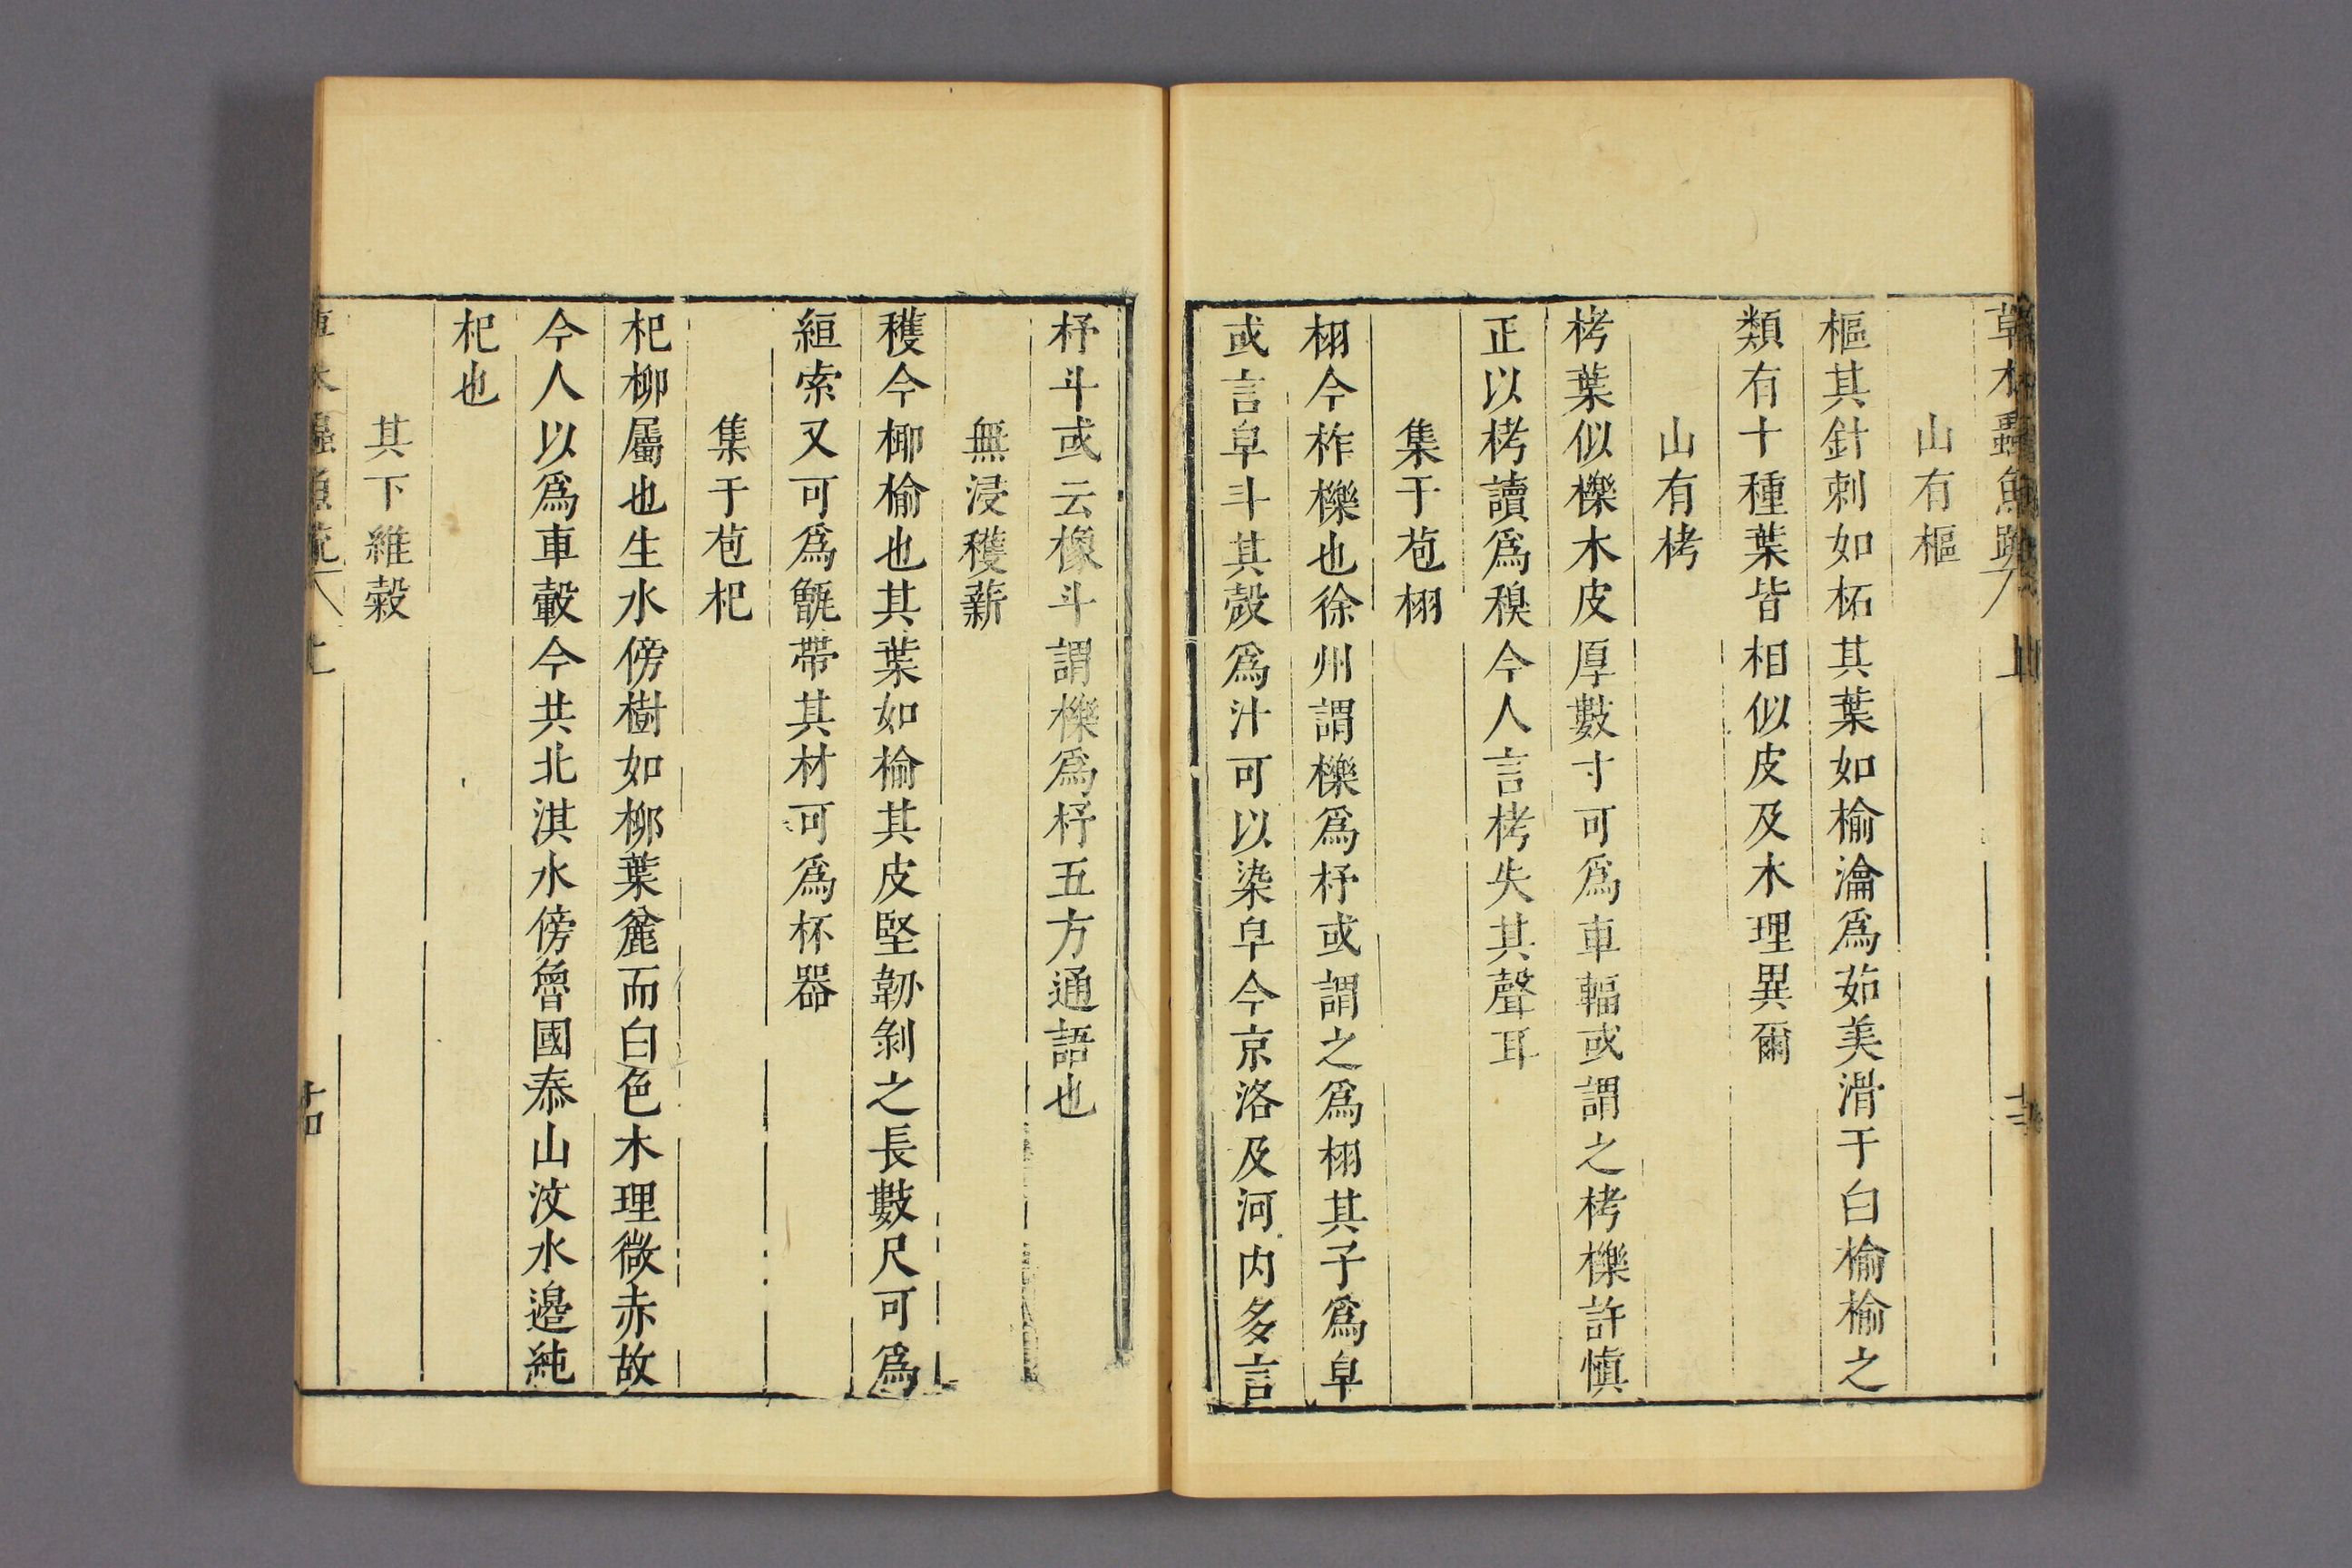 山有樞
樞其針刺如柘其葉如榆瀹爲茹美滑于白榆榆之
類有十種葉皆相似皮及木理異爾
山有栲
栲葉似櫟木皮厚數寸可爲車輻或謂之栲櫟許慎
正以栲讀爲糗今人言栲失其聲耳
集于苞栩
栩今柞櫟也徐州謂櫟爲杼或謂之爲栩其子爲皁
或言皁斗其殼爲汁可以染皁今京洛及河内多言
杼斗或云橡斗謂櫟爲杼五方通語也
無浸穫薪
穫今梛榆也其葉如榆其皮堅韌剝之長數尺可爲
絙索又可爲甑帶其材可爲杯器
集于苞杞
杞柳屬也生水傍樹如柳葉麄而白色木理微赤故
今人以爲車轂今共北淇水傍魯國泰山汶水邉純
杞也
其下維榖